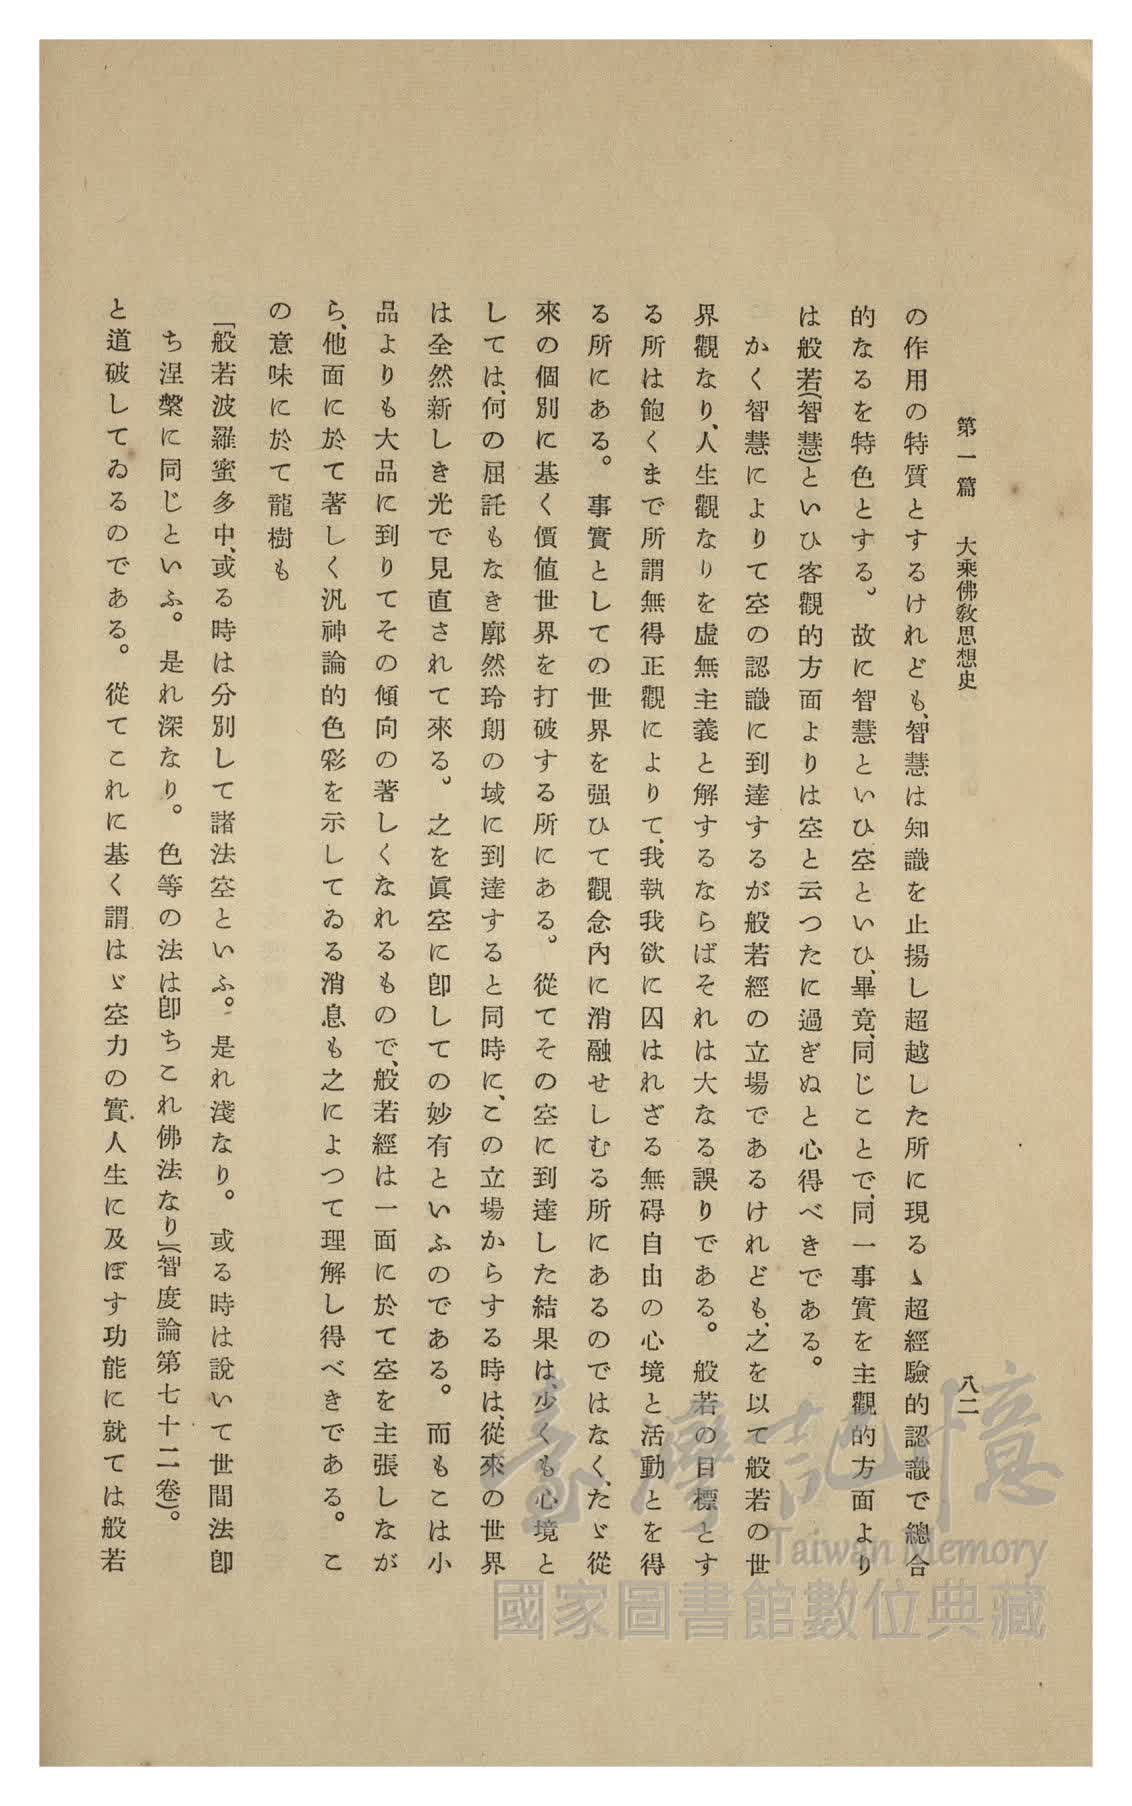 第一篇　大乘佛教思想史
八二
の作用の特質とするけれども、智慧は知識を止揚し超越した所に現るゝ超經驗的認識で總合
的なるを特色とする。故に智慧といひ空といひ、畢竟、同じことで、同一事實を主觀的方面より
は般若(智慧)といひ客觀的方面よりは空と云つたに過ぎぬと心得べきである。
かく智慧によりて空の認識に到達するが般若經の立場であるけれども、之を以て般若の世
界觀なり、人生觀なりを虛無主義と解するならばそれは大なる誤りである。般若の目標とす
る所は飽くまで所謂無得正觀によりて、我執我欲に囚はれざる無碍自由の心境と活動とを得
る所にある。事實としての世界を强ひて觀念內に消融せしむる所にあるのではなく、たゞ從
來の個別に基く價値世界を打破する所にある。從てその空に到達した結果は、少くも心境と
しては、何の屈託もなき廓然玲朗の域に到達すると同時に、この立場からする時は、從來の世界
は全然新しき光で見直されて來る。之を眞空に卽しての妙有といふのである。而もこは小
品よりも大品に到りてその傾向の著しくなれるもので、般若經は一面に於て空を主張しなが
ら、他面に於て著しく汎神論的色彩を示してゐる消息も之によつて理解し得べきである。こ
の意味に於て龍樹も
「般若波羅蜜多中、或る時は分別して諸法空といふ。是れ淺なり。或る時は說いて世間法卽
ち涅槃に同じといふ。是れ深なり。色等の法は卽ちこれ佛法なり」(智度論第七十二卷)。
と道破してゐるのである。從てこれに基く謂はゞ空力の實人生に及ぼす功能に就ては般若
臺灣記憶
Taiwan Memory
國家圖書館數位典藏